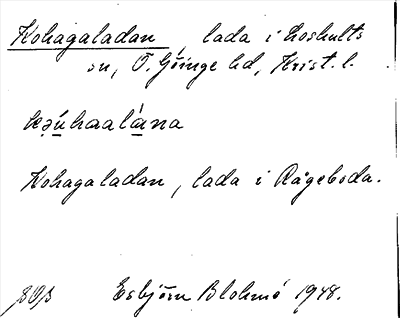 Kohagaladan, lada i Loshults
sn, Ö. Göinge hd, Krist. l.
Kohagaladan, lada i Rågeboda.
Esbjörn Blohmé 1948.